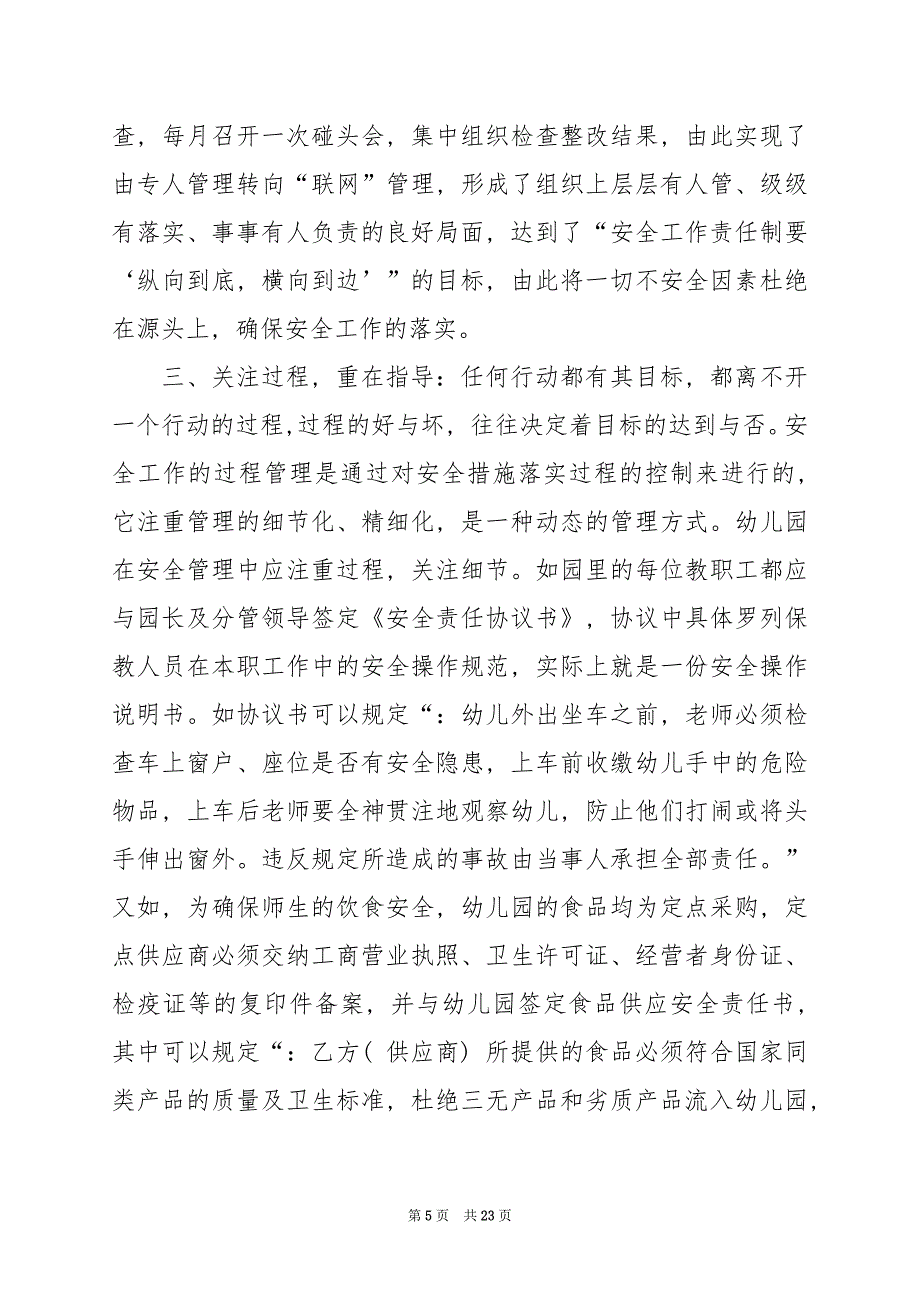 查，每月召开一次碰头会，集中组织检查整改结果，由此实现了
由专人管理转向“联网”管理，形成了组织上层层有人管、级级
有落实、事事有人负责的良好局面，达到了“安全工作责任制要
‘纵向到底，横向到边’”的目标，由此将一切不安全因素杜绝
在源头上，确保安全工作的落实。
三、关注过程，重在指导：任何行动都有其目标，都离不开
一个行动的过程,过程的好与坏，往往决定着目标的达到与否。安
全工作的过程管理是通过对安全措施落实过程的控制来进行的，
它注重管理的细节化、精细化，是一种动态的管理方式。幼儿园
在安全管理中应注重过程，关注细节。如园里的每位教职工都应
与园长及分管领导签定《安全责任协议书》，协议中具体罗列保
教人员在本职工作中的安全操作规范，实际上就是一份安全操作
说明书。如协议书可以规定“：幼儿外出坐车之前，老师必须检
查车上窗户、座位是否有安全隐患，上车前收缴幼儿手中的危险
物品，上车后老师要全神贯注地观察幼儿，防止他们打闹或将头
手伸出窗外。违反规定所造成的事故由当事人承担全部责任。”
又如，为确保师生的饮食安全，幼儿园的食品均为定点采购，定
点供应商必须交纳工商营业执照、卫生许可证、经营者身份证、
检疫证等的复印件备案，并与幼儿园签定食品供应安全责任书，
其中可以规定“：乙方( 供应商) 所提供的食品必须符合国家同
类产品的质量及卫生标准，杜绝三无产品和劣质产品流入幼儿园，
第 5 页 共 23 页